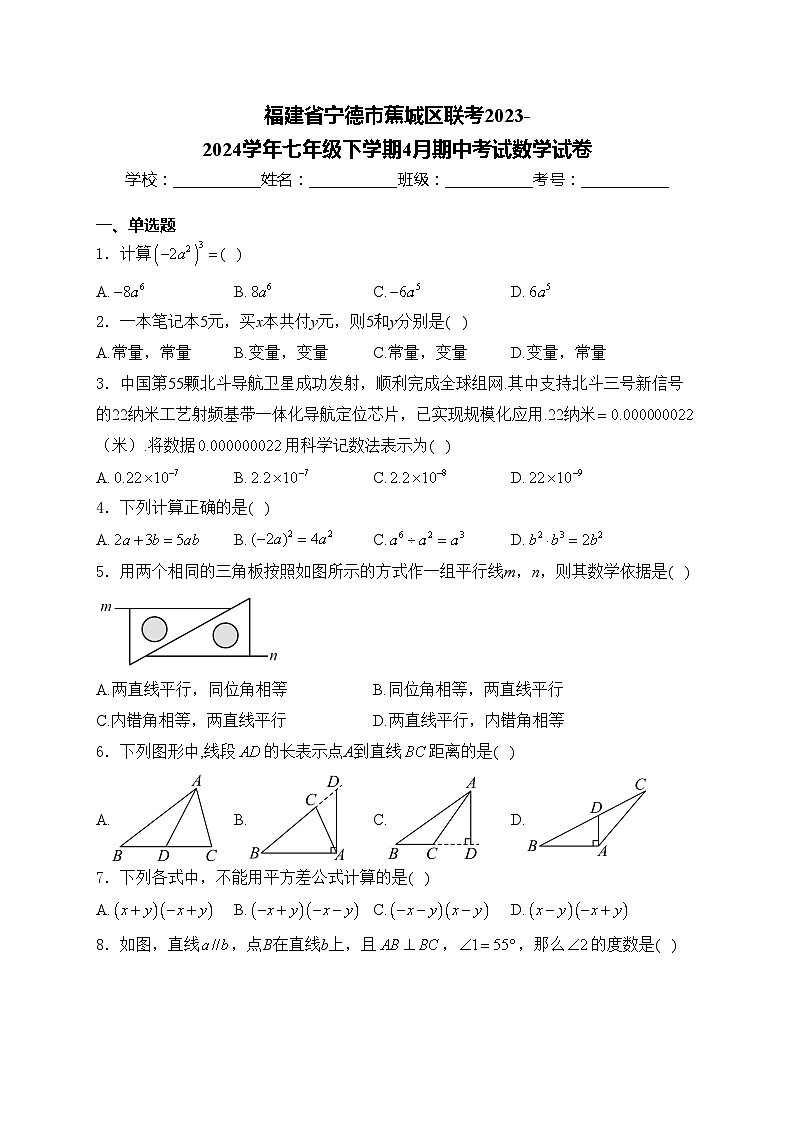 福建省宁德市蕉城区联考2023-
2024学年七年级下学期4月期中考试数学试卷
学校：___________姓名：___________班级：___________考号：___________
一、单选题
1．计算(−2a²)³=( )
A.−8a⁶ B.8a⁶ C.−6a⁵ D.6a⁵
2．一本笔记本5元，买x本共付y元，则5和y分别是( )
A.常量，常量 B.变量，变量 C.常量，变量 D.变量，常量
3．中国第55颗北斗导航卫星成功发射，顺利完成全球组网.其中支持北斗三号新信号
的22纳米工艺射频基带一体化导航定位芯片，已实现规模化应用.22纳米=0.000000022
（米）.将数据0.000000022用科学记数法表示为( )
A.0.22×10⁻⁷ B.2.2×10⁻⁷ C.2.2×10⁻⁸ D.22×10⁻⁹
4．下列计算正确的是( )
A.2a+3b=5ab B.(−2a)²=4a² C.a⁶÷a²=a³ D.b²·b³=2b²
5．用两个相同的三角板按照如图所示的方式作一组平行线m，n，则其数学依据是( )
m
n
A.两直线平行，同位角相等 B.同位角相等，两直线平行
C.内错角相等，两直线平行 D.两直线平行，内错角相等
6．下列图形中,线段AD的长表示点A到直线BC距离的是( )
A. A B D C B. D C B A C. A B C D D. C D B A
7．下列各式中，不能用平方差公式计算的是( )
A.(x+y)(−x+y) B.(−x+y)(−x−y) C.(−x−y)(x−y) D.(x−y)(−x+y)
8．如图，直线a//b，点B在直线b上，且AB⊥BC，∠1=55°，那么∠2的度数是( )